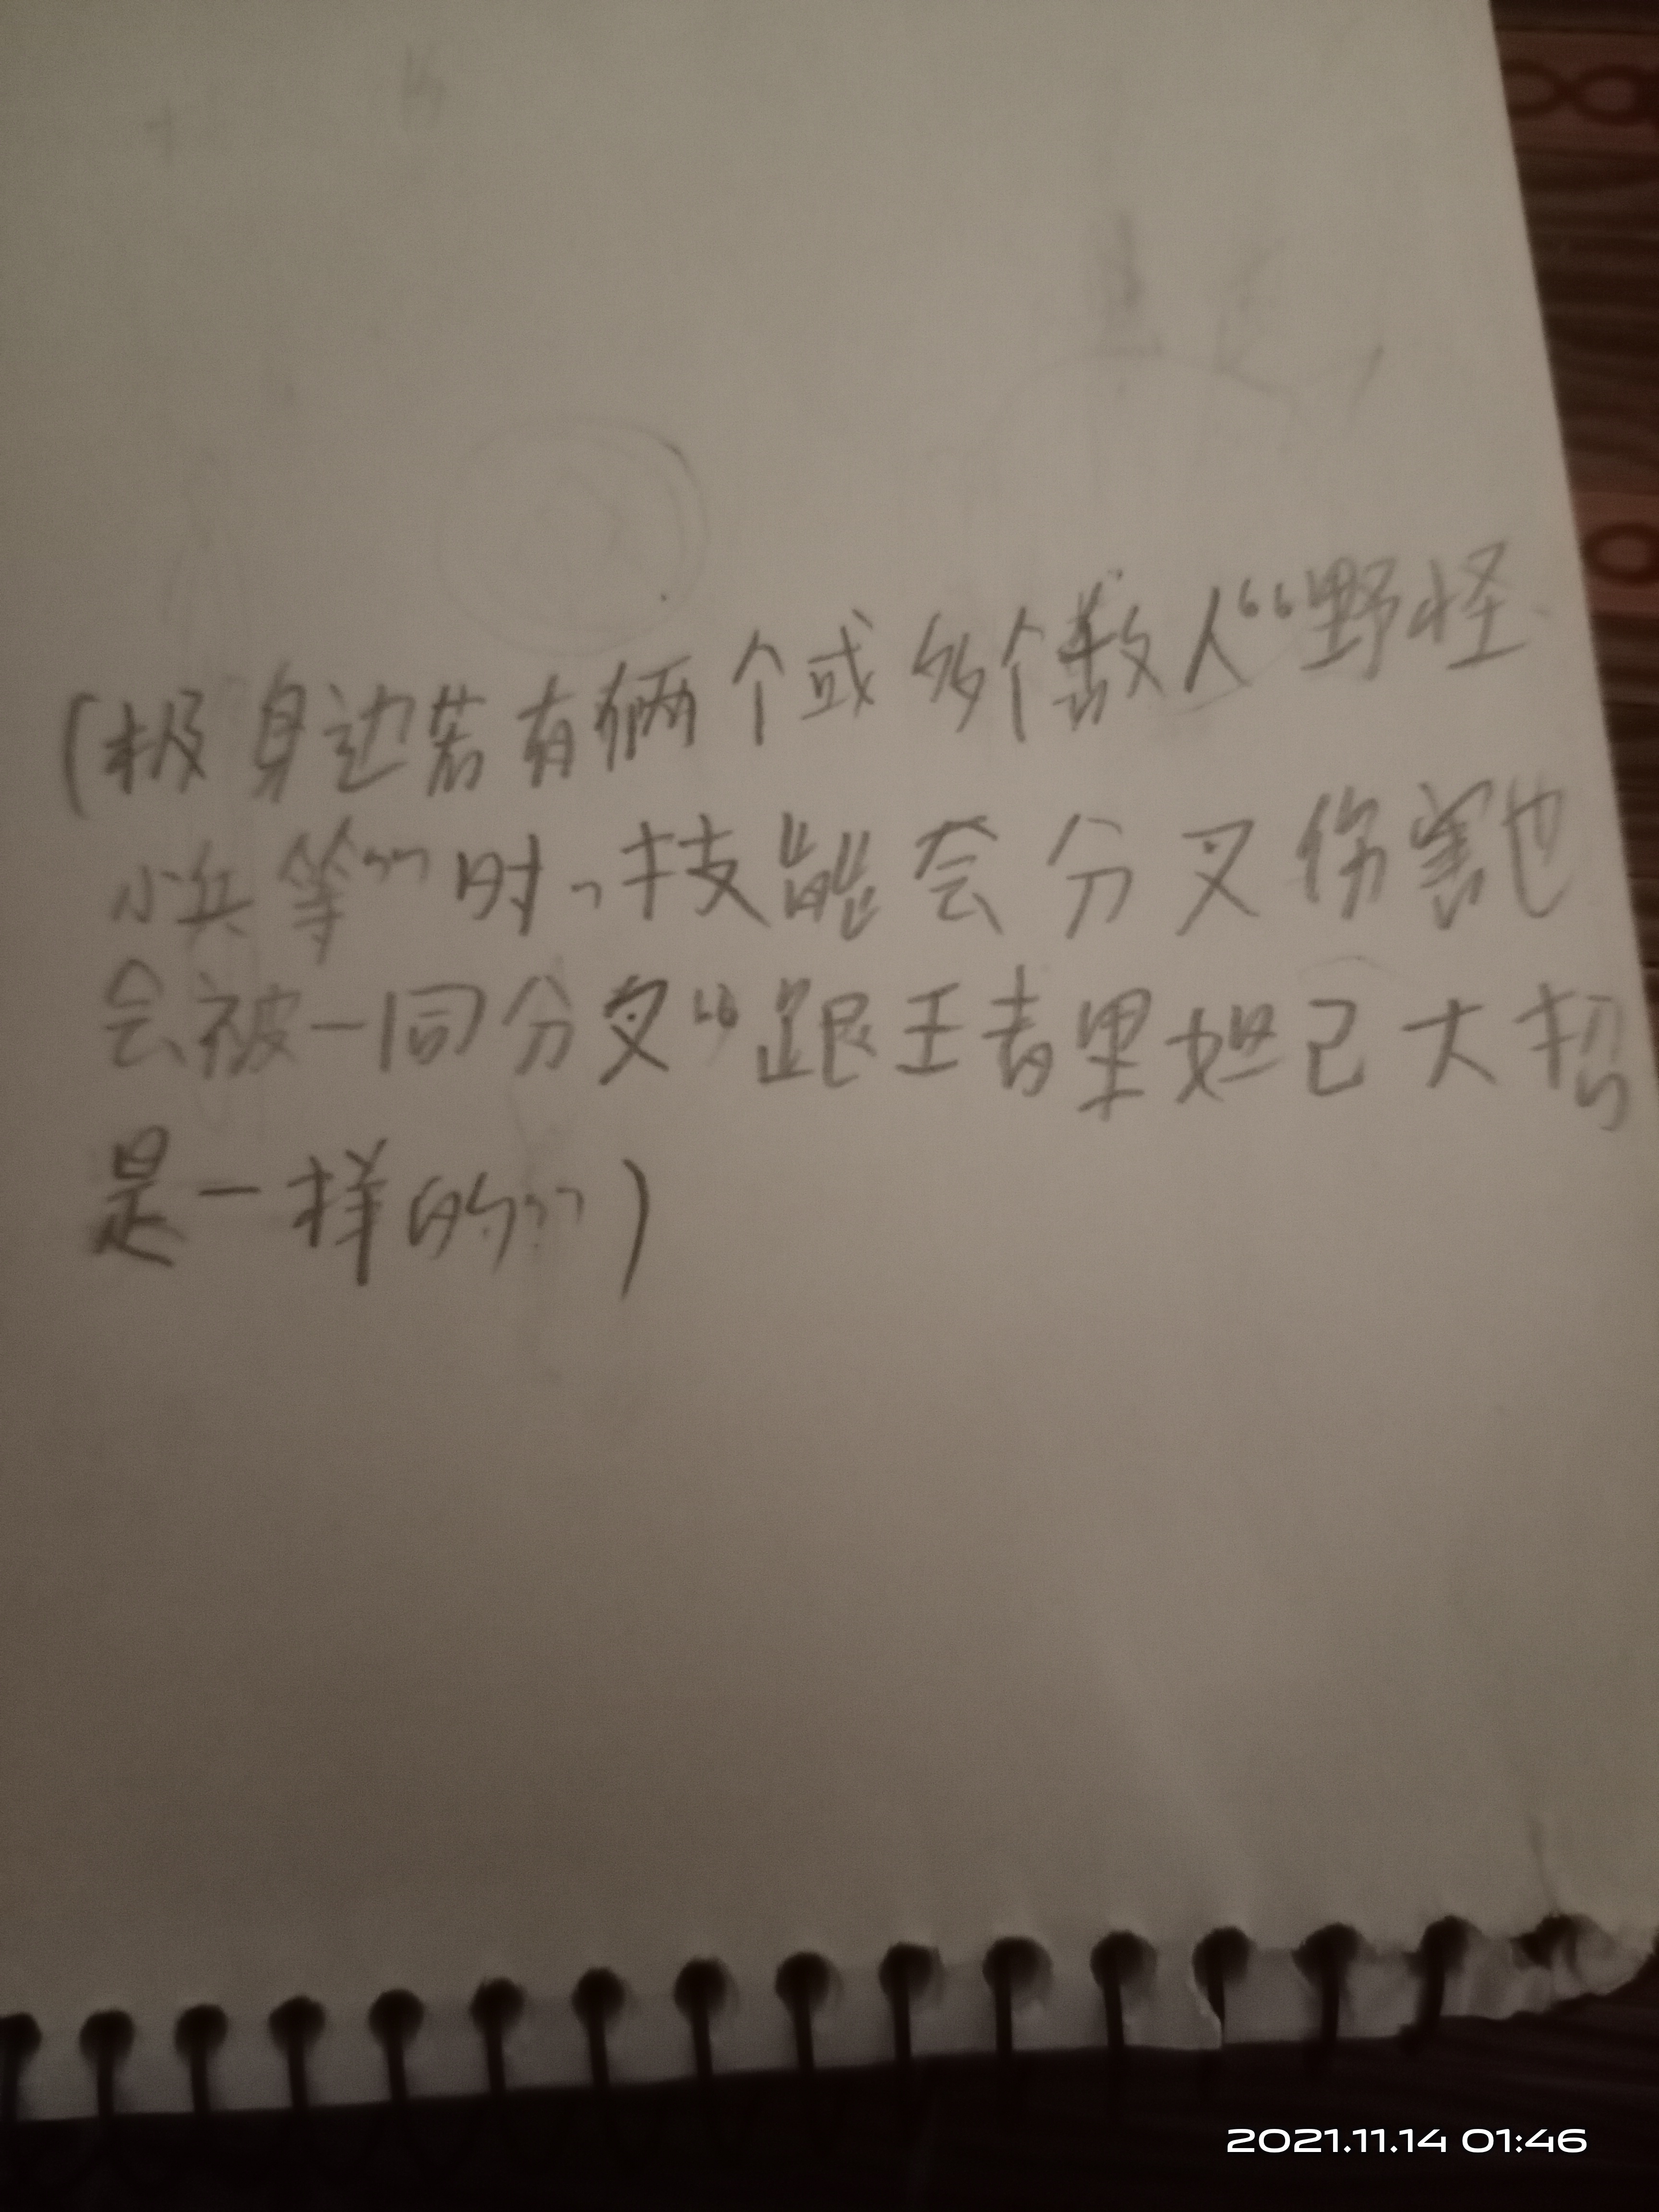 (极身边若有俩个或多个敌人“野怪
小兵等”时,技能会分叉伤害也
会被一同分叉“跟王者里妲己大招
是一样的”)
2021.11.14 01:46